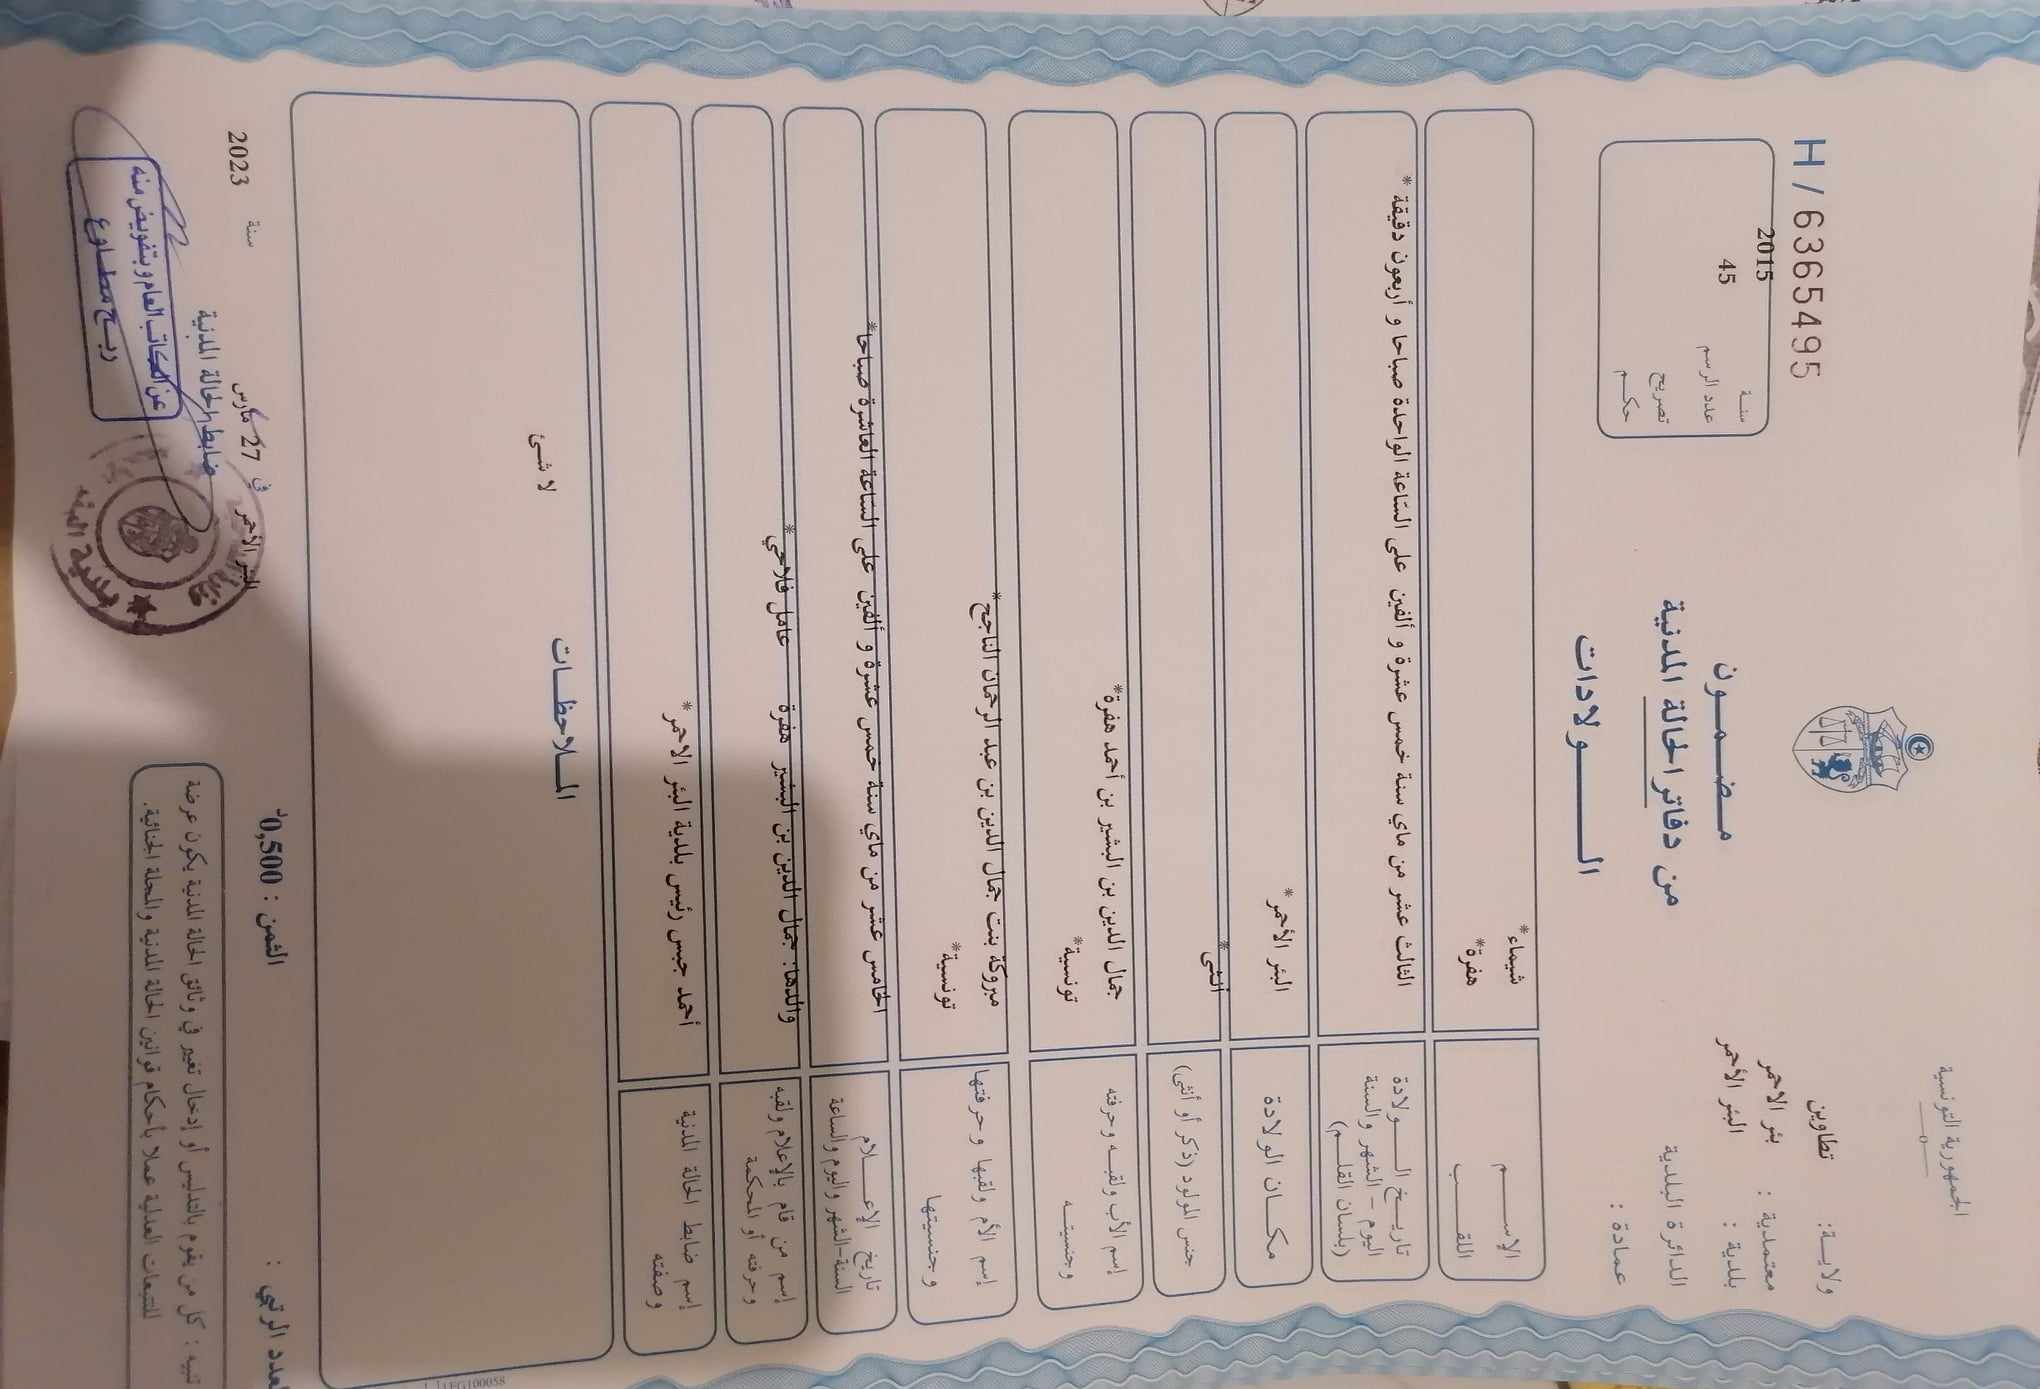 الجمهورية التونسية
ولايـــة: تطاوين
معتمدية : بئر الاحمر
بلدية : البئر الأحمر
الدائرة البلدية
عمادة :
H/6365495
سنـة 2015
عدد الرسم 45
تصريح
حكـم
مـضـمــون
من دفاتر الحالة المدنية
الـــــولادات
الإســـم شيماء*
اللقـــب هفرة*
تاريـخ الـــولادة
اليوم - الشهر والسنة
(بلسان القلـم)
الثالث عشر من ماي سنة خمس عشرة و ألفين على السّاعة الواحدة صباحا و أربعون دقيقة *
مكـــان الولادة البئر الأحمر*
جنس المولود (ذكر أو أنثى) أنثى*
إسم الأب ولقبـه وحرفته
وجنسيتــه
جمال الدين بن البشير بن أحمد هفرة*
تونسية*
إسم الأم ولقبها وحرفتها
وجنسيتها
مبروكة بنت جمال الدين بن عبد الرحمان الناجح*
تونسية*
تاريخ الإعـــلام
السنة-الشهر واليوم والساعة
الخامس عشر من ماي سنة خمس عشرة و ألفين على السّاعة العاشرة صباحا*
إسم من قام بالإعلام ولقبه
وحرفته أو المحكمة
والدها: جمال الدين بن البشير هفرة عامل فلاحي*
إسم ضابط الحالة المدنية
وصفته
أحمد حبس رئيس بلدية البئر الاحمر*
المــلاحظــات
لا شئ
العدد الرتبي :
الثمن : 0,500د
البئر الأحمر في 27 مارس سنة 2023
ضابط الحالة المدنية
عن الكاتب العام وبتفويض منه
ربـح مطــاوع
تنبيه : كل من يقوم بالتدليس أو إدخال تغيير في وثائق الحالة المدنية يكون عرضة
للتتبعات العدلية عملا بأحكام قوانين الحالة المدنية والمجلة الجنائية.